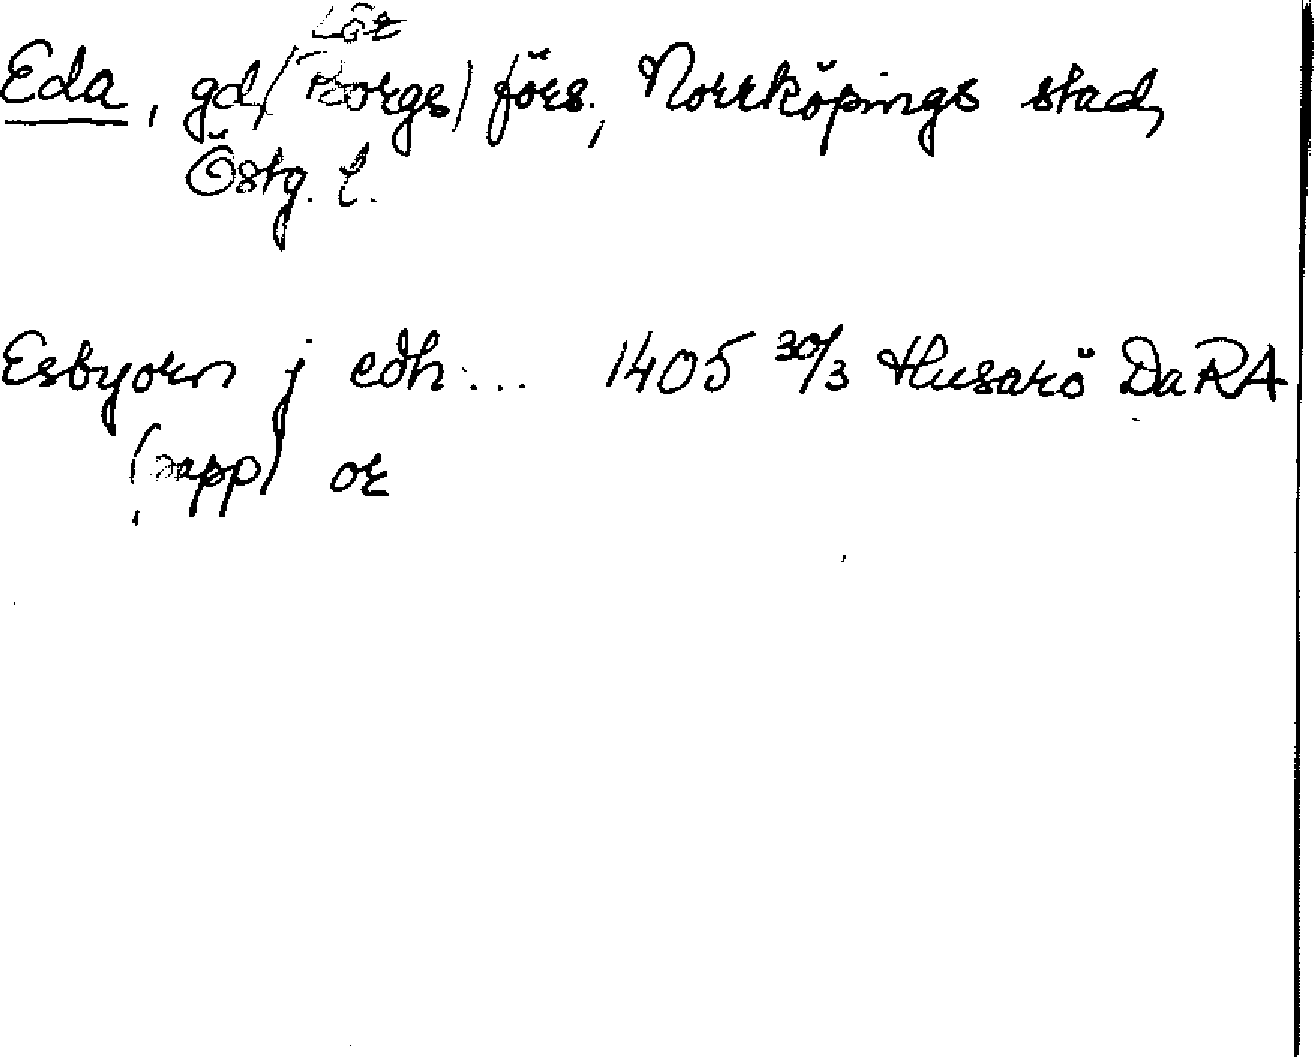 Löt
Eda, gd (Borgs) förs., Norrköpings stad,
Östg. l.
Esbyorn j edh ... 1405 30/3 Husarö Da RA
(papp) or